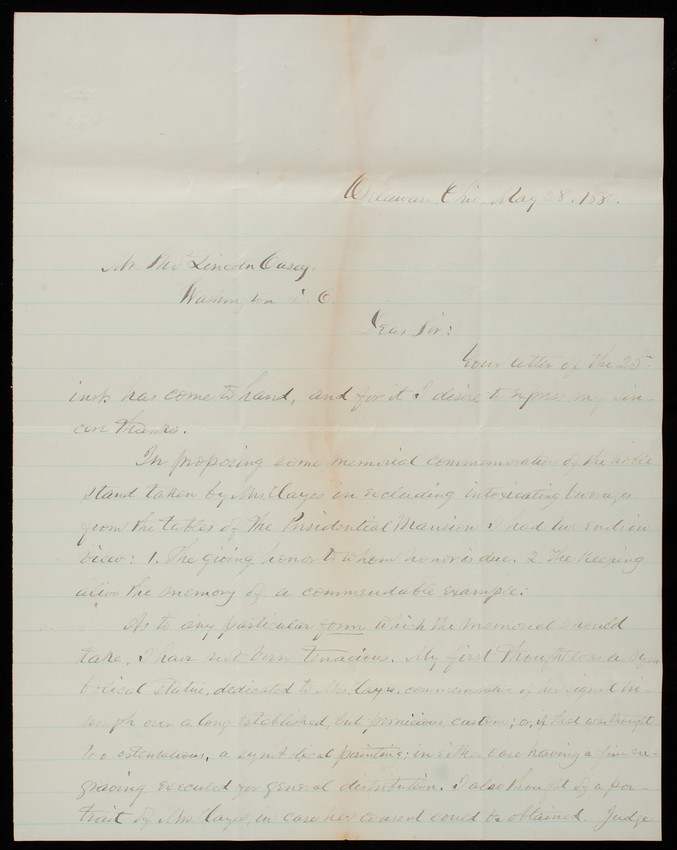 Delaware, Ohio May 28. 188
Mr. Thos Lincoln Casey.
Washington D. C.
Dear Sir:
Your letter of the 25
inst. has come to hand, and for it I desire to express my sin-
cere thanks.
In proposing some memorial commemorative of the noble
stand taken by Mrs Hayes in excluding intoxicating beverages
from the tables of the Presidential Mansion I had two ends in
view: 1. The giving honor to whom honor is due. 2 The keeping
alive the memory of a commendable example.
As to any particular form which the memorial should
take, I have not been tenacious. My first thought was a sym-
bolical statue, dedicated to Mrs Hayes, commemorative of her signal tri-
umph over a long established, but pernicious custom; or, if that was thought
too ostentatious, a symbolical painting: in either case having a fine en-
graving executed for general distribution. I also thought of a por-
trait of Mrs Hayes, in case her consent could be obtained. Judge